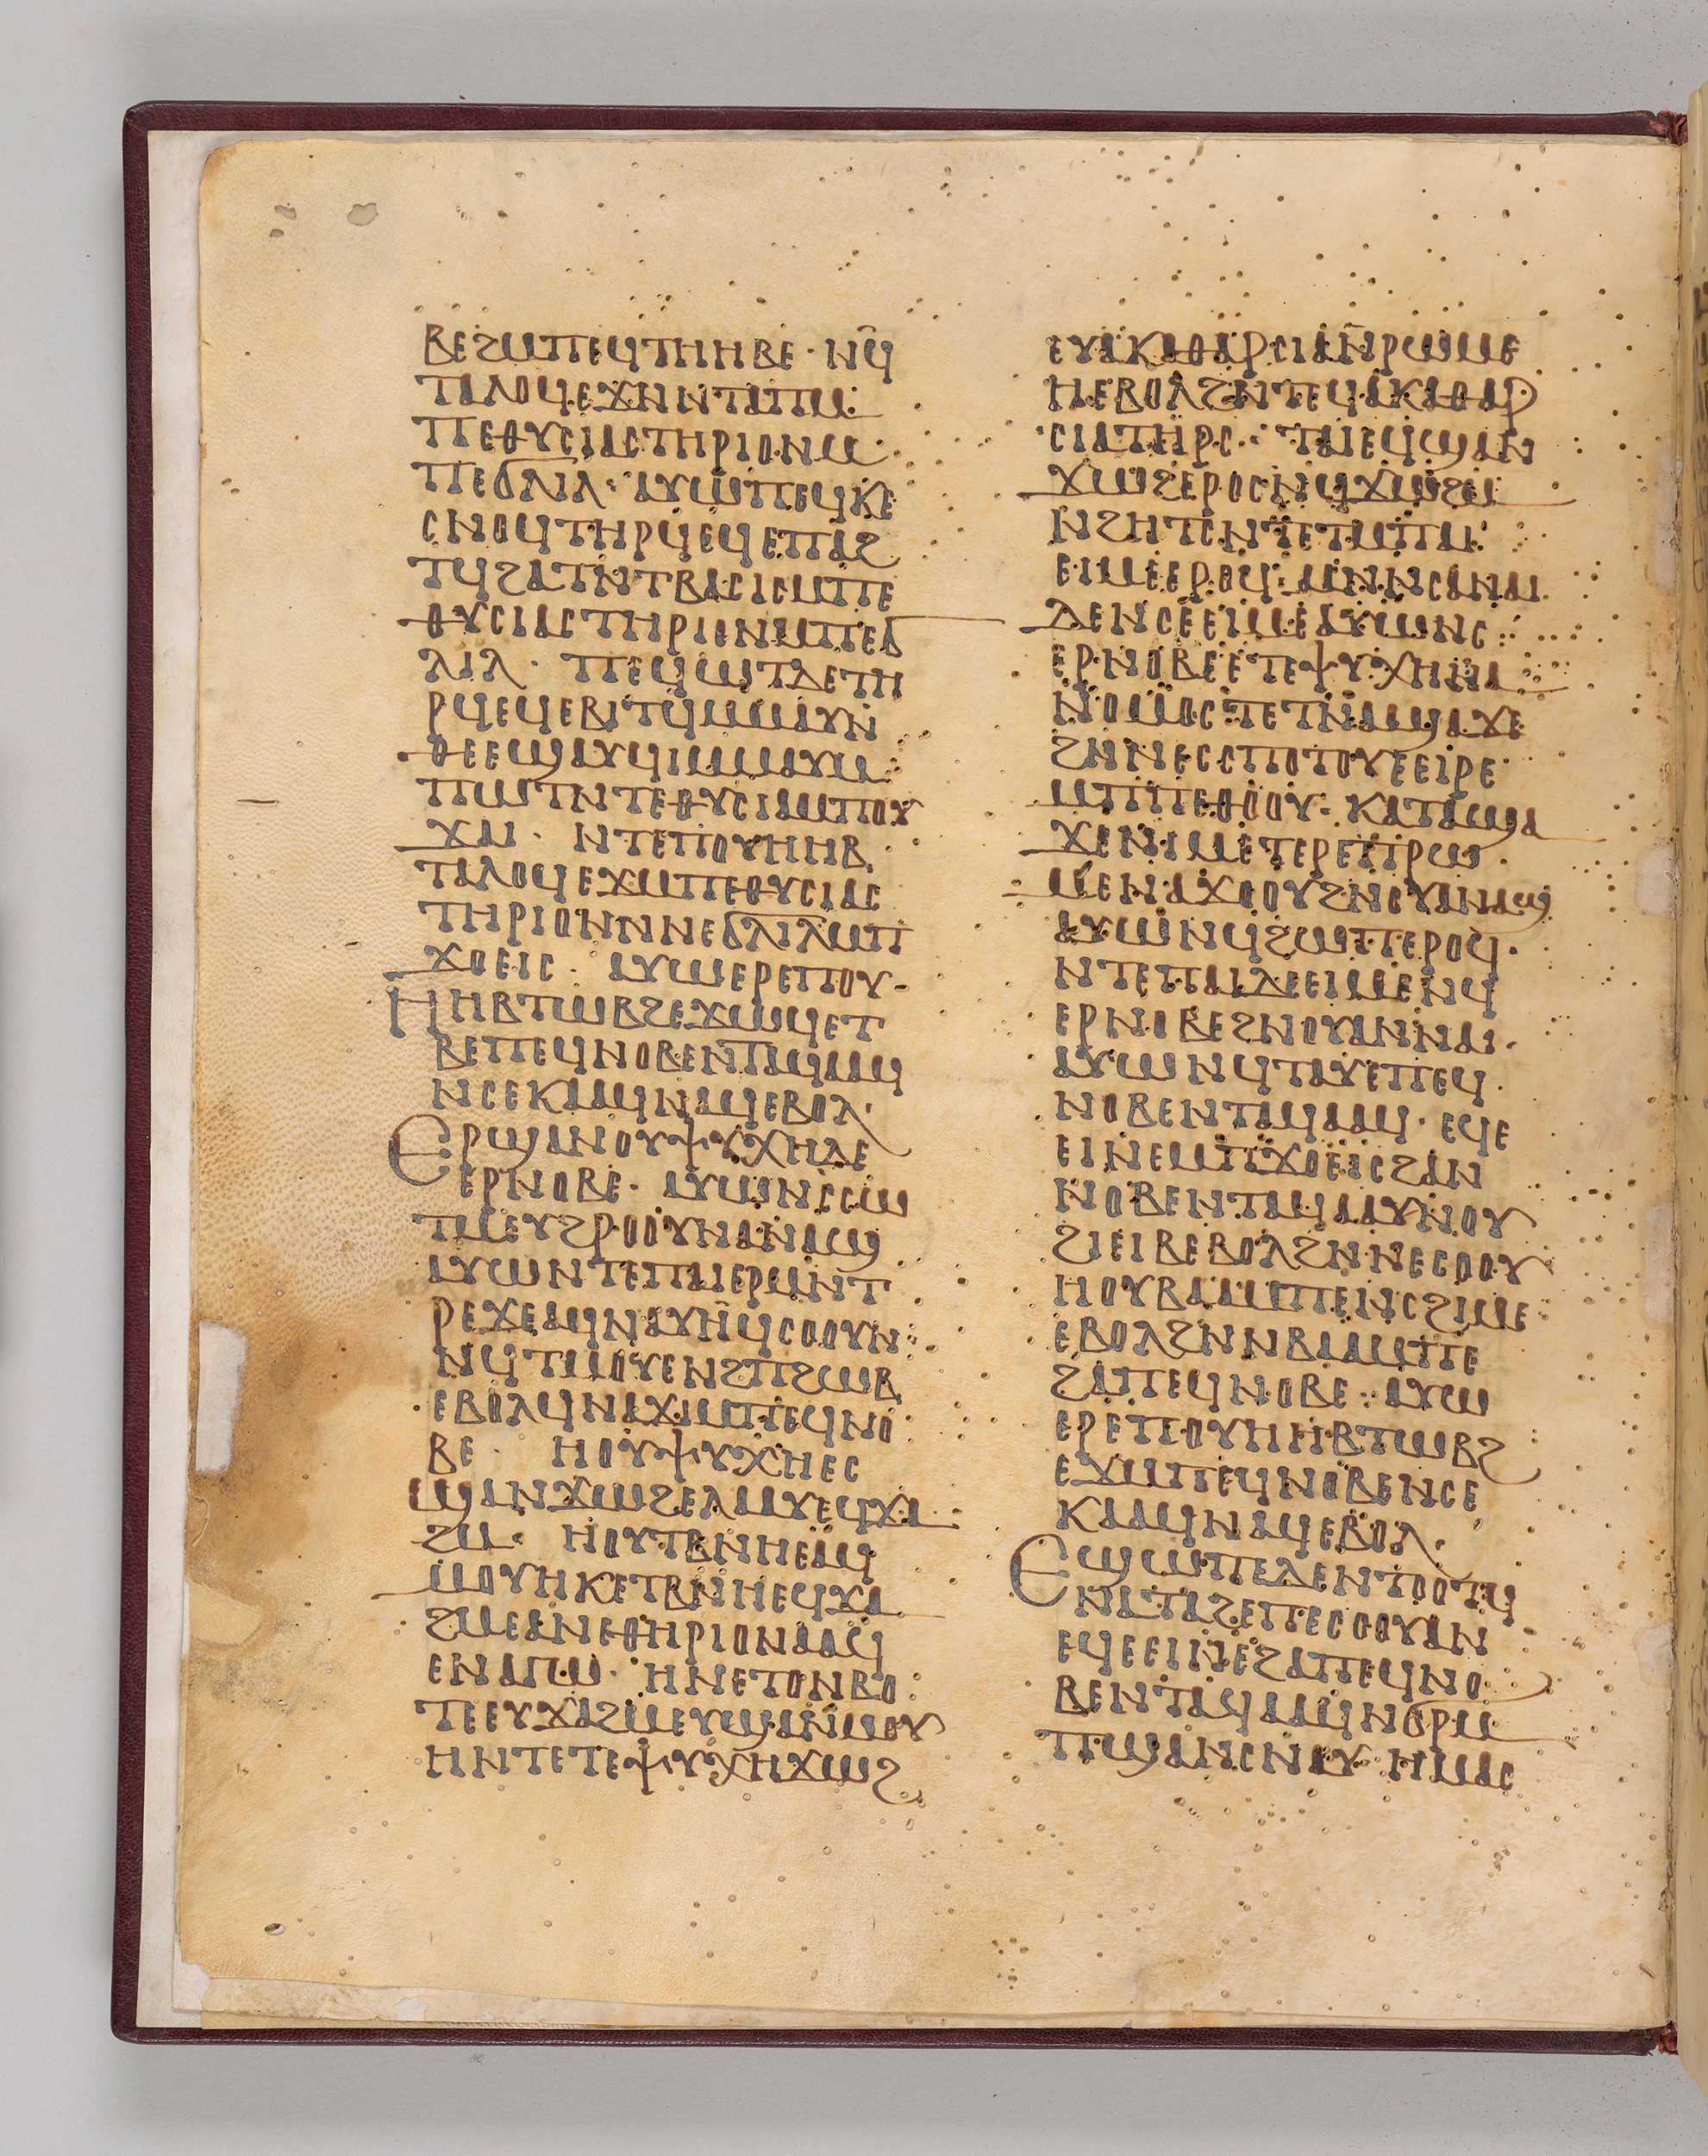 ⲃⲉϩⲙⲡⲉϥⲧⲏⲏⲃⲉ · ⲛϥ̄
ⲧⲁⲗⲟϥⲉϫⲛⲛⲧⲁⲡⲙ̄
ⲡⲉⲑⲩⲥⲓⲁⲥⲧⲏⲣⲓⲟⲛⲙ
ⲡⲉϭⲗⲓⲗ · ⲁⲩⲱⲡⲉϥⲕⲉ
ⲥⲛⲟϥⲧⲏⲣϥⲉϥⲉⲡⲁϩ
ⲧϥϩⲁⲧⲛⲧⲃⲁⲥⲓⲥⲙⲡⲉ
ⲑⲩⲥⲓⲁⲥⲧⲏⲣⲓⲟⲛⲙⲡⲉϭ
ⲗⲓⲗ · ⲡⲉϥⲱⲧⲇⲉⲧⲏ
ⲣϥⲉϥⲉϥⲓⲧϥⲙⲙⲁⲩⲛ
ⲑⲉⲉϣⲁⲩϥⲓⲙⲙⲁⲩⲙ
ⲡⲱⲧⲛⲧⲉⲑⲩⲥⲓⲁⲙⲡⲟⲩ
ϫⲁⲓ · ⲛⲧⲉⲡⲟⲩⲏⲏⲃ
ⲧⲁⲗⲟϥⲉϫⲙⲡⲉⲑⲩⲥⲓⲁⲥ
ⲧⲏⲣⲓⲟⲛⲛⲛⲉϭⲗⲓⲗⲙⲡ
ϫⲟⲉⲓⲥ · ⲁⲩⲱⲉⲣⲉⲡⲟⲩ
ⲏⲏⲃⲧⲱⲃϩⲉϫⲱϥⲉⲧ
ⲃⲉⲡⲉϥⲛⲟⲃⲉⲛⲧⲁϥⲁⲁϥ
ⲛⲥⲉⲕⲁⲁϥⲛⲁϥⲉⲃⲟⲗ ·
ⲉⲣϣⲁⲛⲟⲩⲯⲩⲭⲏⲇⲉ
ⲉⲣⲛⲟⲃⲉ · ⲁⲩⲱⲛⲥⲥⲱ
ⲧⲙⲉⲩϩⲣⲟⲟⲩⲛⲁⲛⲁϣ
ⲁⲩⲱⲛⲧⲉⲡⲁⲓⲉⲣⲙⲛⲧ
ⲣⲉϫⲉⲁϥⲛⲁⲩⲏϥⲥⲟⲟⲩⲛ
ⲛϥⲧⲙⲟⲩⲉⲛϩⲡϩⲱⲃ
ⲉⲃⲟⲗϥⲛⲁϫⲓⲙⲡⲉϥⲛⲟ
ⲃⲉ · ⲏⲟⲩⲯⲩⲭⲏⲉⲥ
ϣⲁⲛϫⲱϩⲉⲗⲁⲁⲩⲉϥϫⲁ
ϩⲙ · ⲏⲟⲩⲧⲃⲛⲏⲉⲁϥ
ⲙⲟⲩⲏⲕⲉⲧⲃⲛⲏⲉϥϫⲁ
ϩⲙⲉⲁⲛⲉⲑⲏⲣⲓⲟⲛⲁⲁϥ
ⲏⲛⲉⲧⲟⲛⲃⲟ
ⲧⲉⲉⲩϫⲁϩⲙⲉⲩϣⲁⲛⲙⲟⲩ
ⲏⲛⲧⲉⲧⲉⲯⲩⲭⲏϫⲱϩ
ⲉⲩⲁⲕⲁⲑⲁⲣⲥⲓⲁⲛ̄ⲣⲱⲙⲉ
ⲏⲉⲃⲟⲗϩⲛⲧⲉϥⲁⲕⲁⲑⲁⲣ
ⲥⲓⲁⲧⲏⲣⲥ · ⲧⲁⲓⲉϥϣⲁⲛ
ϫⲱϩⲉⲣⲟⲥⲛϥϫⲱϩⲙ
ⲛϩⲏⲧⲥ
ⲉⲓⲙⲉⲉⲣⲟϥ · ⲙⲛⲛⲥⲁⲛⲁⲓ
ⲇⲉⲛⲥⲉⲉⲓⲙⲉⲁⲩⲱⲛⲥ
ⲉⲣⲛⲟⲃⲉⲉⲧⲉⲯⲩⲭⲏⲛⲁ
ⲛⲟⲙⲟⲥⲧⲉⲧⲛⲁϣⲁϫⲉ
ϩⲛⲛⲉⲥⲥⲡⲟⲧⲟⲩⲉⲉⲓⲣⲉ
ⲙⲡⲡⲉⲑⲟⲟⲩ · ⲕⲁⲧⲁϣⲁ
ϫⲉⲛⲓⲙⲉⲧⲉⲣⲉⲡⲣⲱ
ⲙⲉⲛⲁϫⲟⲟⲩϩⲛⲟⲩⲁⲛⲁϣ
ⲁⲩⲱⲛϥϩⲱⲡⲉⲣⲟϥ ·
ⲛⲧⲉⲡⲁⲓⲇⲉⲉⲓⲙⲉⲛϥ
ⲉⲣⲛⲟⲃⲉϩⲛⲟⲩⲁⲛⲛⲁⲓ ·
ⲁⲩⲱⲛϥⲧⲁⲩⲉⲡⲉϥ
ⲛⲟⲃⲉⲛⲧⲁϥⲁⲁϥ · ⲉϥⲉ
ⲉⲓⲛⲉⲙⲡϫⲟⲉⲓⲥϩⲁⲛ
ⲛⲟⲃⲉⲛⲧⲁϥⲁⲁⲩⲛⲟⲩ
ϩⲓⲉⲓⲃⲉⲃⲟⲗϩⲛⲛⲉⲥⲟⲟⲩ
ⲏⲟⲩⲃⲁⲁⲙⲡⲉⲛⲥϩⲓⲙⲉ
ⲉⲃⲟⲗϩⲛⲛⲃⲁⲁⲙⲡⲉ
ϩⲁⲡⲉϥⲛⲟⲃⲉ · ⲁⲩⲱ
ⲉⲣⲉⲡⲟⲩⲏⲏⲃⲧⲱⲃϩ
ⲉϫⲙⲡⲉϥⲛⲟⲃⲉⲛⲥⲉ
ⲕⲁⲁϥⲛⲁϥⲉⲃⲟⲗ ·
ⲉϣⲱⲡⲉⲇⲉⲛⲧⲟⲟⲧϥ
ⲛⲁⲧⲁϩⲉⲡⲉⲥⲟⲟⲩⲁⲛ
ⲉϥⲉⲉⲓⲛⲉϩⲁⲡⲉϥⲛⲟ
ⲃⲉⲛⲧⲁϥⲁⲁϥⲛϭⲣⲙ
ⲡϣⲁⲛⲥⲛⲁⲩ ⲏⲙⲁⲥ